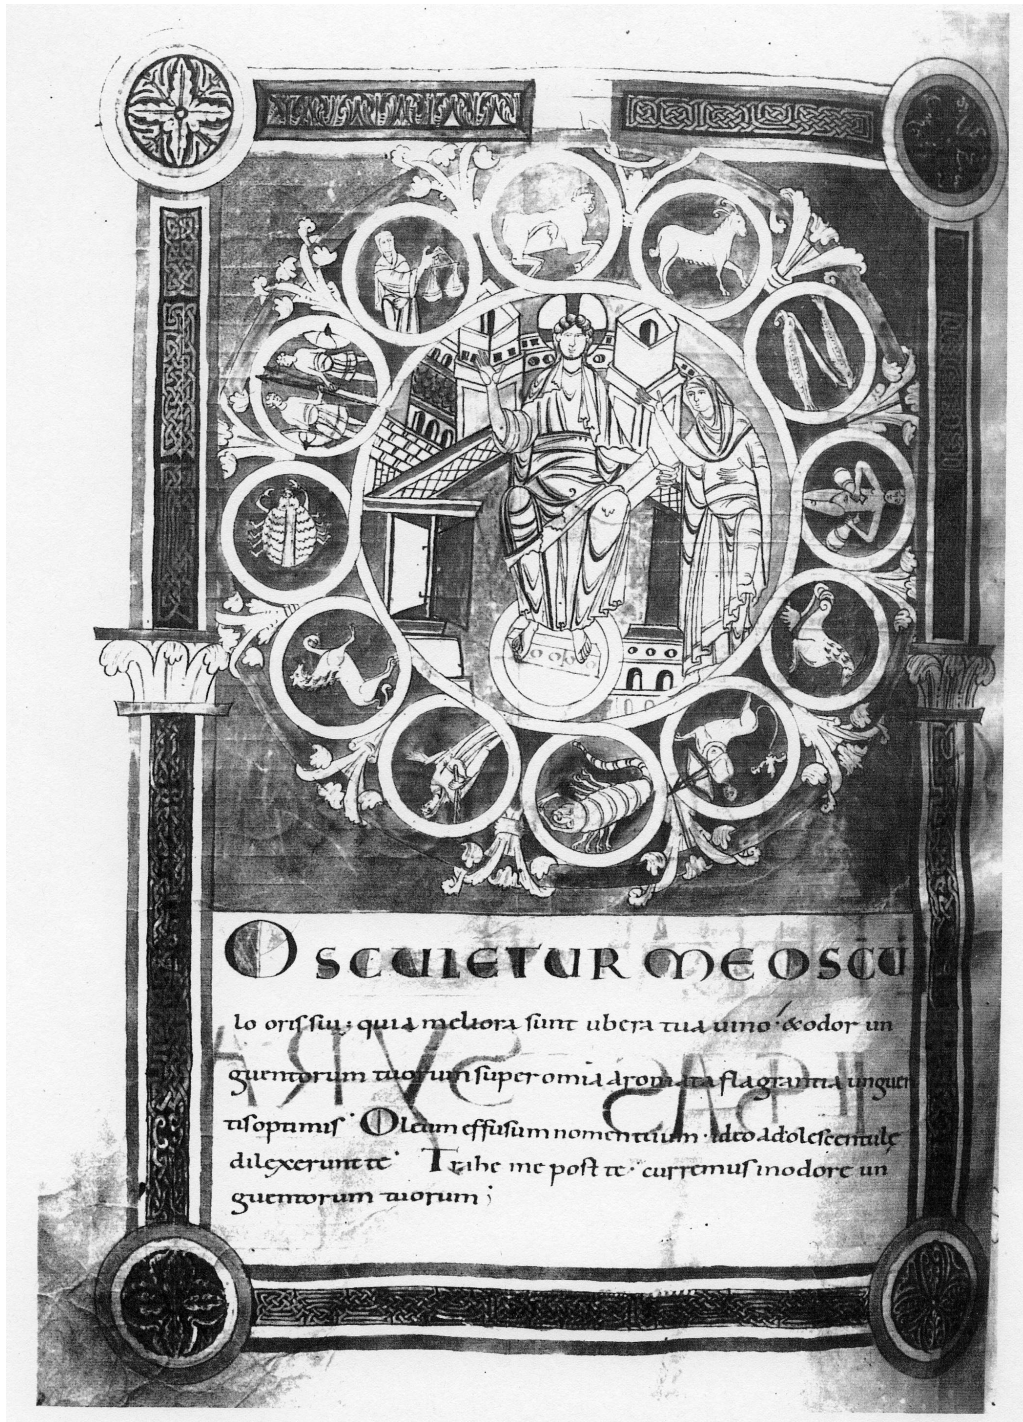 OSCULETUR ME OSCŪ
lo oris sui· quia meliora sunt ubera tua uino· & odor un
guentorum tuorum super omia aromata flagrantia unguen
tis optimis· Oleum effusum nomen tuum· ideo adolescentulę
dilexerunt te· Trahe me post te· curremus in odore un
guentorum tuorum;